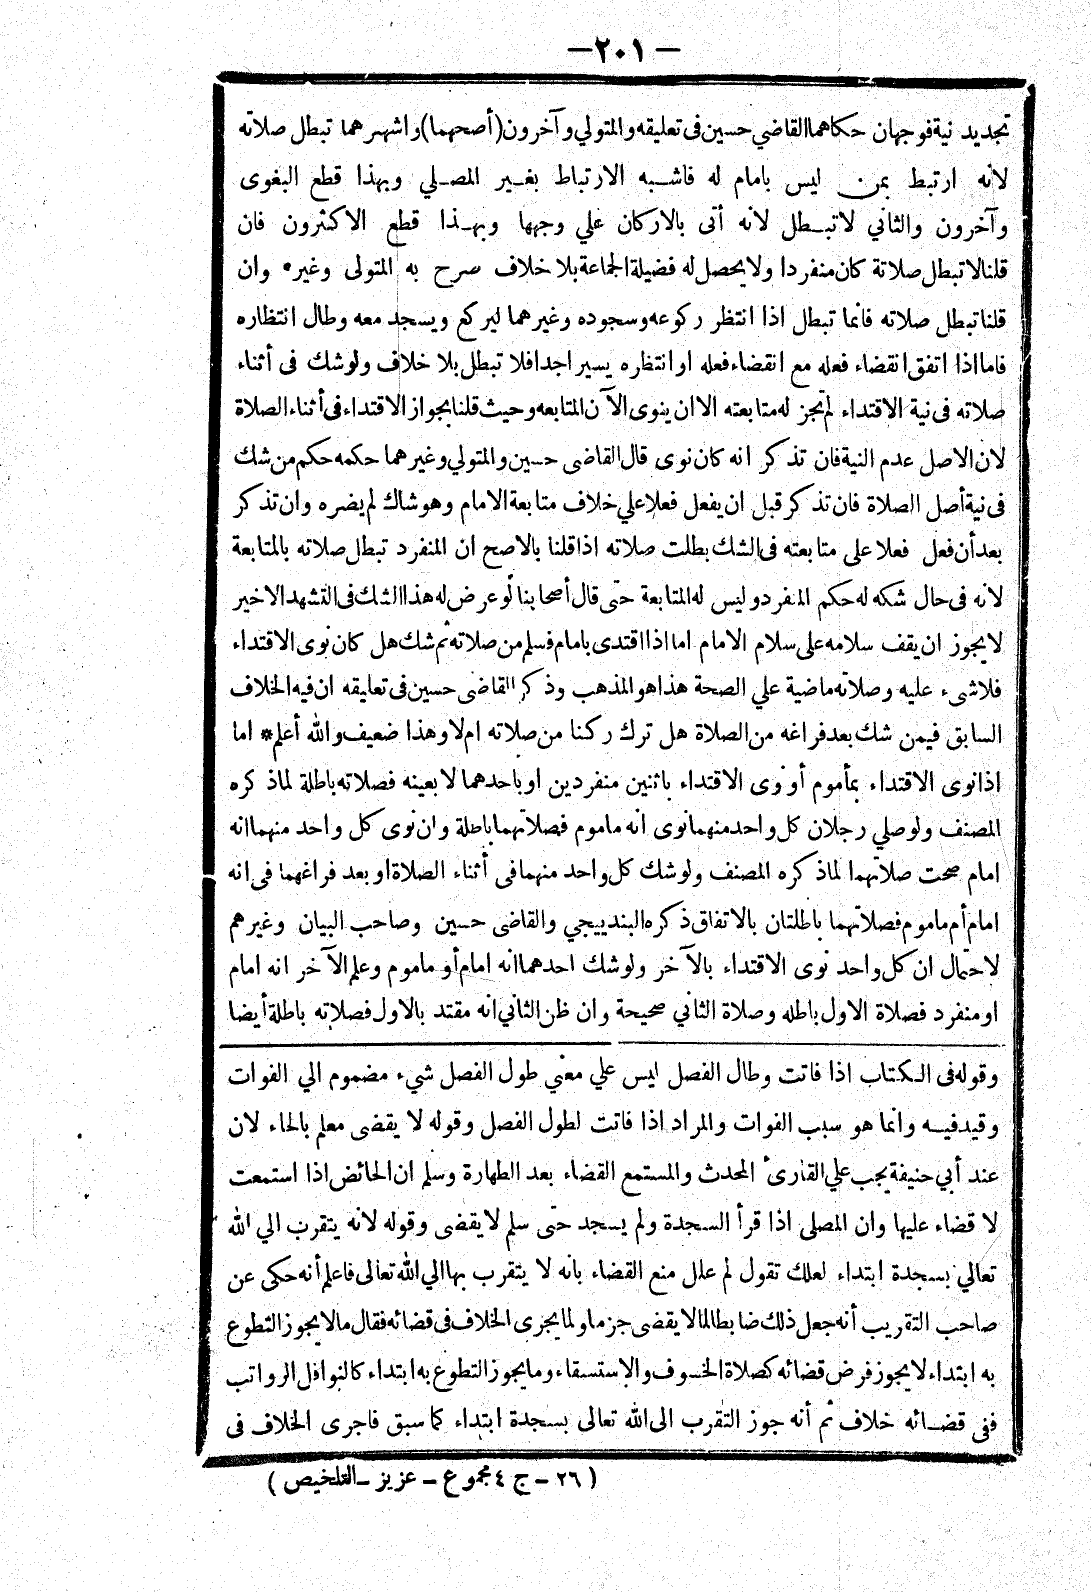 — ٢٠١ —
تجديد نية فوجهان حكاهما القاضي حسين فى تعليقه والمتولي وآخرون (أصحهما) واشهرهما تبطل صلاته
لأنه ارتبط بمن ليس بامام له فاشبه الارتباط بغير المصلي وبهذا قطع البغوى
وآخرون والثاني لا تبطل لأنه أتى بالاركان علي وجهها وبهذا قطع الاكثرون فان
قلنا لا تبطل صلاته كان منفردا ولا يحصل له فضيلة الجماعة بلا خلاف صرح به المتولى وغيره وان
قلنا تبطل صلاته فانما تبطل اذا انتظر ركوعه وسجوده وغيرهما ليركع ويسجد معه وطال انتظاره
فاما اذا اتفق انقضاء فعله مع انقضاء فعله او انتظاره يسيرا جدا فلا تبطل بلا خلاف ولو شك فى أثناء
صلاته فى نية الاقتداء لم تجز له متابعته الا ان ينوى الآن المتابعه وحيث قلنا بجواز الاقتداء فى أثناء الصلاة
لان الاصل عدم النية فان تذكر انه كان نوى قال القاضى حسين والمتولي وغيرهما حكمه حكم من شك
فى نية أصل الصلاة فان تذكر قبل ان يفعل فعلا علي خلاف متابعة الامام وهو شاك لم يضره وان تذكر
بعد أن فعل فعلا على متابعته فى الشك بطلت صلاته اذا قلنا بالاصح ان المنفرد تبطل صلاته بالمتابعة
لأنه فى حال شكه له حكم المنفرد وليس له المتابعة حتى قال أصحابنا لو عرض له هذا الشك فى التشهد الاخير
لا يجوز ان يقف سلامه على سلام الامام اما اذا اقتدى بامام فسلم من صلاته ثم شك هل كان نوى الاقتداء
فلا شىء عليه وصلاته ماضية علي الصحة هذا هو المذهب وذكر القاضى حسين فى تعليقه ان فيه الخلاف
السابق فيمن شك بعد فراغه من الصلاة هل ترك ركنا من صلاته ام لا وهذا ضعيف والله أعلم * اما
اذا نوى الاقتداء بمأموم أو نوى الاقتداء باثنين منفردين او باحدهما لا بعينه فصلاته باطلة لما ذكره
المصنف ولو صلي رجلان كل واحد منهما نوى انه ماموم فصلاتهما باطلة وان نوى كل واحد منهما انه
امام صحت صلاتهما لما ذكره المصنف ولو شك كل واحد منهما فى أثناء الصلاة او بعد فراغهما فى انه
امام أم ماموم فصلاتهما باطلتان بالاتفاق ذكره البندنيجي والقاضى حسين وصاحب البيان وغيرهم
لاحتمال ان كل واحد نوى الاقتداء بالآخر ولو شك احدهما انه امام أو ماموم وعلم الآخر انه امام
او منفرد فصلاة الاول باطله وصلاة الثاني صحيحة وان ظن الثاني انه مقتد بالاول فصلاته باطلة أيضا
وقوله فى الكتاب اذا فاتت وطال الفصل ليس علي معني طول الفصل شيء مضموم الي الفوات
وقيد فيه وانما هو سبب الفوات والمراد اذا فاتت لطول الفصل وقوله لا يقضى معلم بالحاء لان
عند أبي حنيفة يجب علي القارئ المحدث والمستمع القضاء بعد الطهارة وسلم ان الحائض اذا استمعت
لا قضاء عليها وان المصلى اذا قرأ السجدة ولم يسجد حتى سلم لا يقضى وقوله لانه يتقرب الي الله
تعالي بسجدة ابتداء لعلك تقول لم علل منع القضاء بانه لا يتقرب بها الي الله تعالى فاعلم أنه حكى عن
صاحب التقريب أنه جعل ذلك ضابطا لما لا يقضى جزما ولما يجزى الخلاف فى قضائه فقال ما لا يجوز التطوع
به ابتداء لا يجوز فرض قضائه كصلاة الخسوف والاستسقاء وما يجوز التطوع به ابتداء كالنوافل الرواتب
ففى قضائه خلاف ثم أنه جوز التقرب الى الله تعالى بسجدة ابتداء كما سبق فاجرى الخلاف فى
( ٢٦ – ج ٤ مجموع – عزيز – التلخيص )